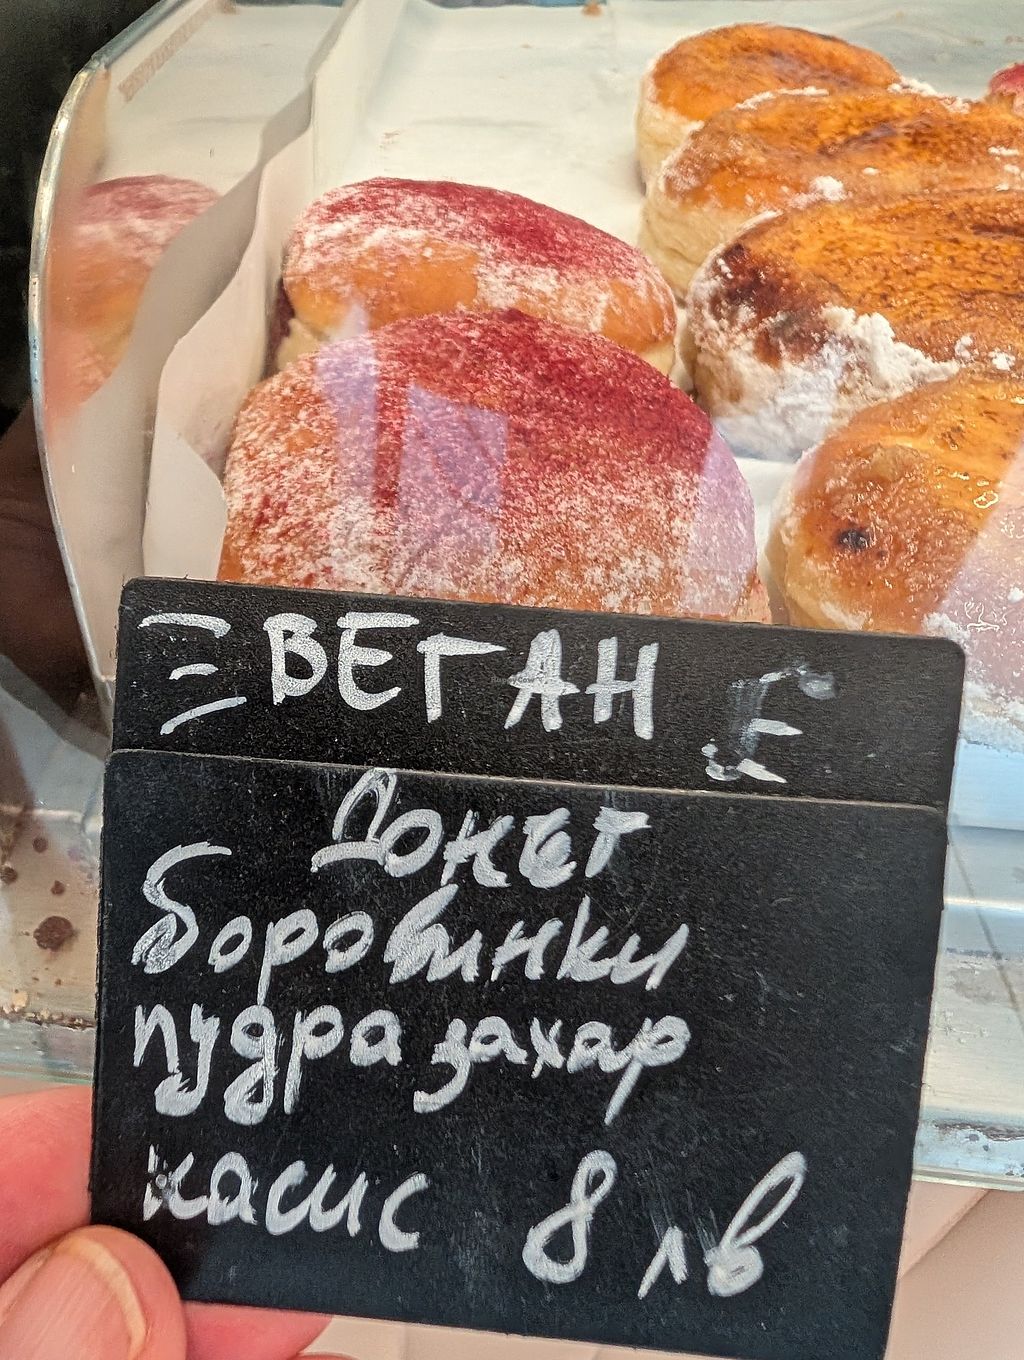 ВЕГАН
Донът
боровинки
пудра захар
касис 8 лв